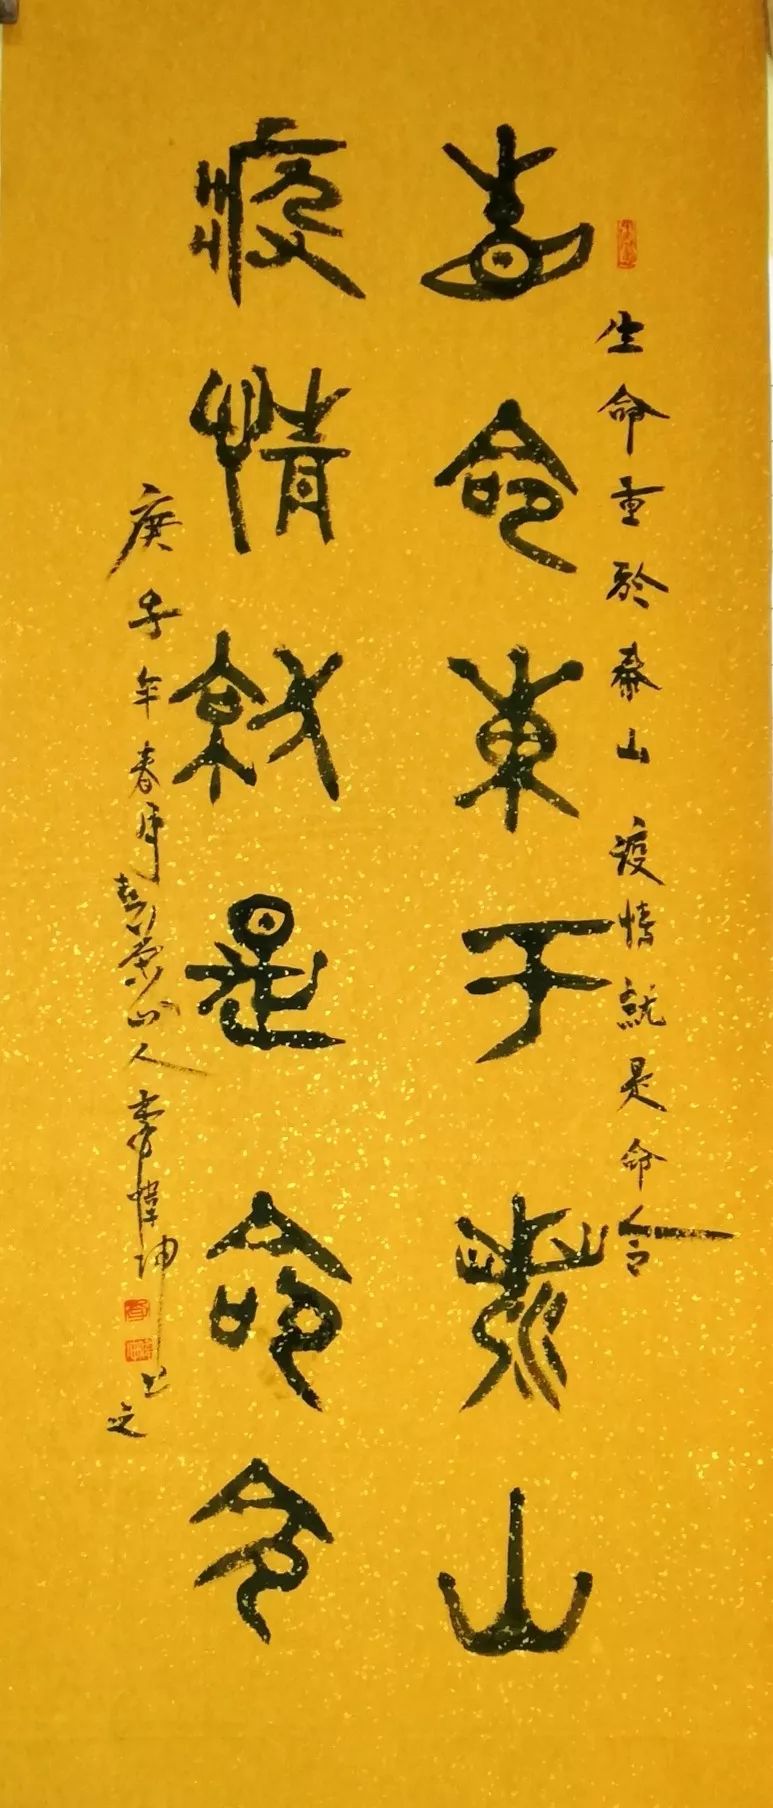 生命重於泰山 疫情就是命令
生命重于泰山
疫情就是命令
庚子年春月 山人李 坤